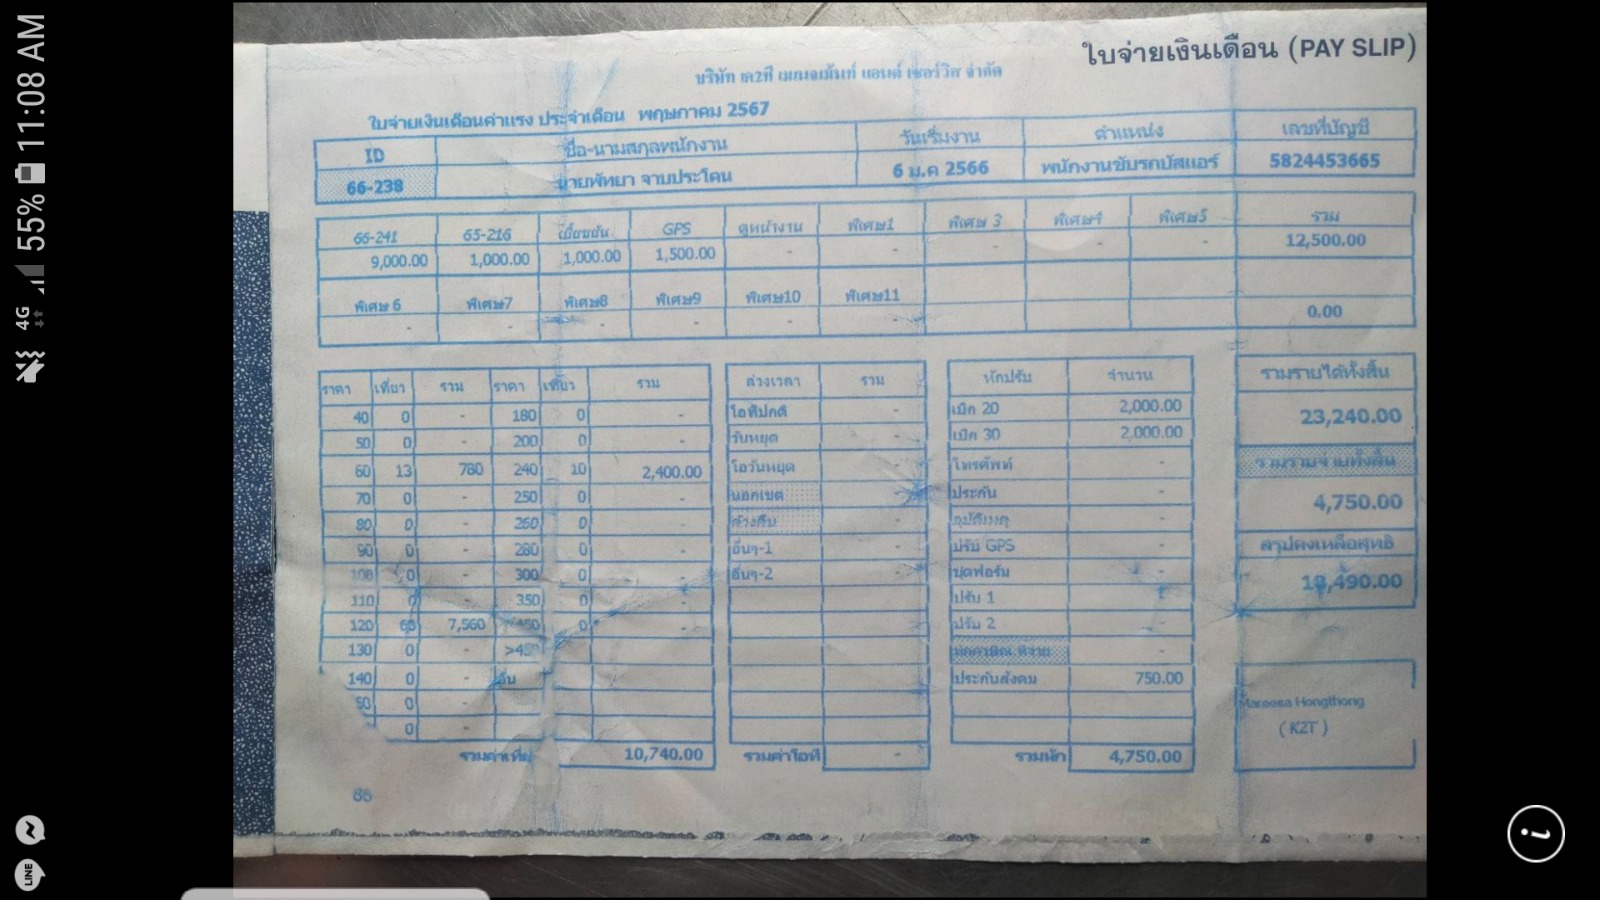 11:08 AM
55%
4G
LINE
ใบจ่ายเงินเดือน (PAY SLIP)
บริษัท เค2ที เมเนจเม้นท์ แอนด์ เซอร์วิส จำกัด
ใบจ่ายเงินเดือนค่าแรง ประจำเดือน พฤษภาคม 2567
ID ชื่อ-นามสกุลพนักงาน วันเริ่มงาน ตำแหน่ง เลขที่บัญชี
66-238 นายพัทยา จาบประโคน 6 ม.ค 2566 พนักงานขับรถบัสแอร์ 5824453665
66-241 65-216 เบี้ยขยัน GPS ดูหน้างาน พิเศษ1 พิเศษ 3 พิเศษ4 พิเศษ5 รวม
9,000.00 1,000.00 1,000.00 1,500.00 - - - - - 12,500.00
พิเศษ 6 พิเศษ7 พิเศษ8 พิเศษ9 พิเศษ10 พิเศษ11
- - - - - - 0.00
ราคา เที่ยว รวม ราคา เที่ยว รวม
40 0 - 180 0 -
50 0 - 200 0 -
60 13 780 240 10 2,400.00
70 0 - 250 0 -
80 0 - 260 0 -
90 0 - 280 0 -
100 0 - 300 0 -
110 0 - 350 0 -
120 7,560 0 -
130 0 -
140 0 - อื่น
0 -
0 -
รวมค่าเที่ยว 10,740.00
ล่วงเวลา รวม
โอทีปกติ -
วันหยุด -
โอวันหยุด -
นอกเขต -
ล้างคืน -
อื่นๆ-1 -
อื่นๆ-2 -
รวมค่าโอที -
หักปรับ จำนวน
เบิก 20 2,000.00
เบิก 30 2,000.00
โทรศัพท์ -
ประกัน -
อุบัติเหตุ -
ปรับ GPS -
ชุดฟอร์ม -
ปรับ 1 -
ปรับ 2 -
-
ประกันสังคม 750.00
รวมหัก 4,750.00
รวมรายได้ทั้งสิ้น
23,240.00
รวมรายจ่ายทั้งสิ้น
4,750.00
สรุปคงเหลือสุทธิ
18,490.00
Mareesa Hongthong
( K2T )
86